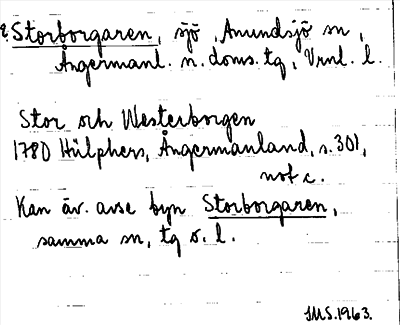 Storborgaren, sjö, Anundsjö sn,
Ångermanl. n. doms. tg, Vrnl. l.
Stor och Westerborgen
1780 Hülphers, Ångermanland, s. 301,
not c.
Kan äv. avse byn Storborgaren,
samma sn, tg o. l.
IMS. 1963.